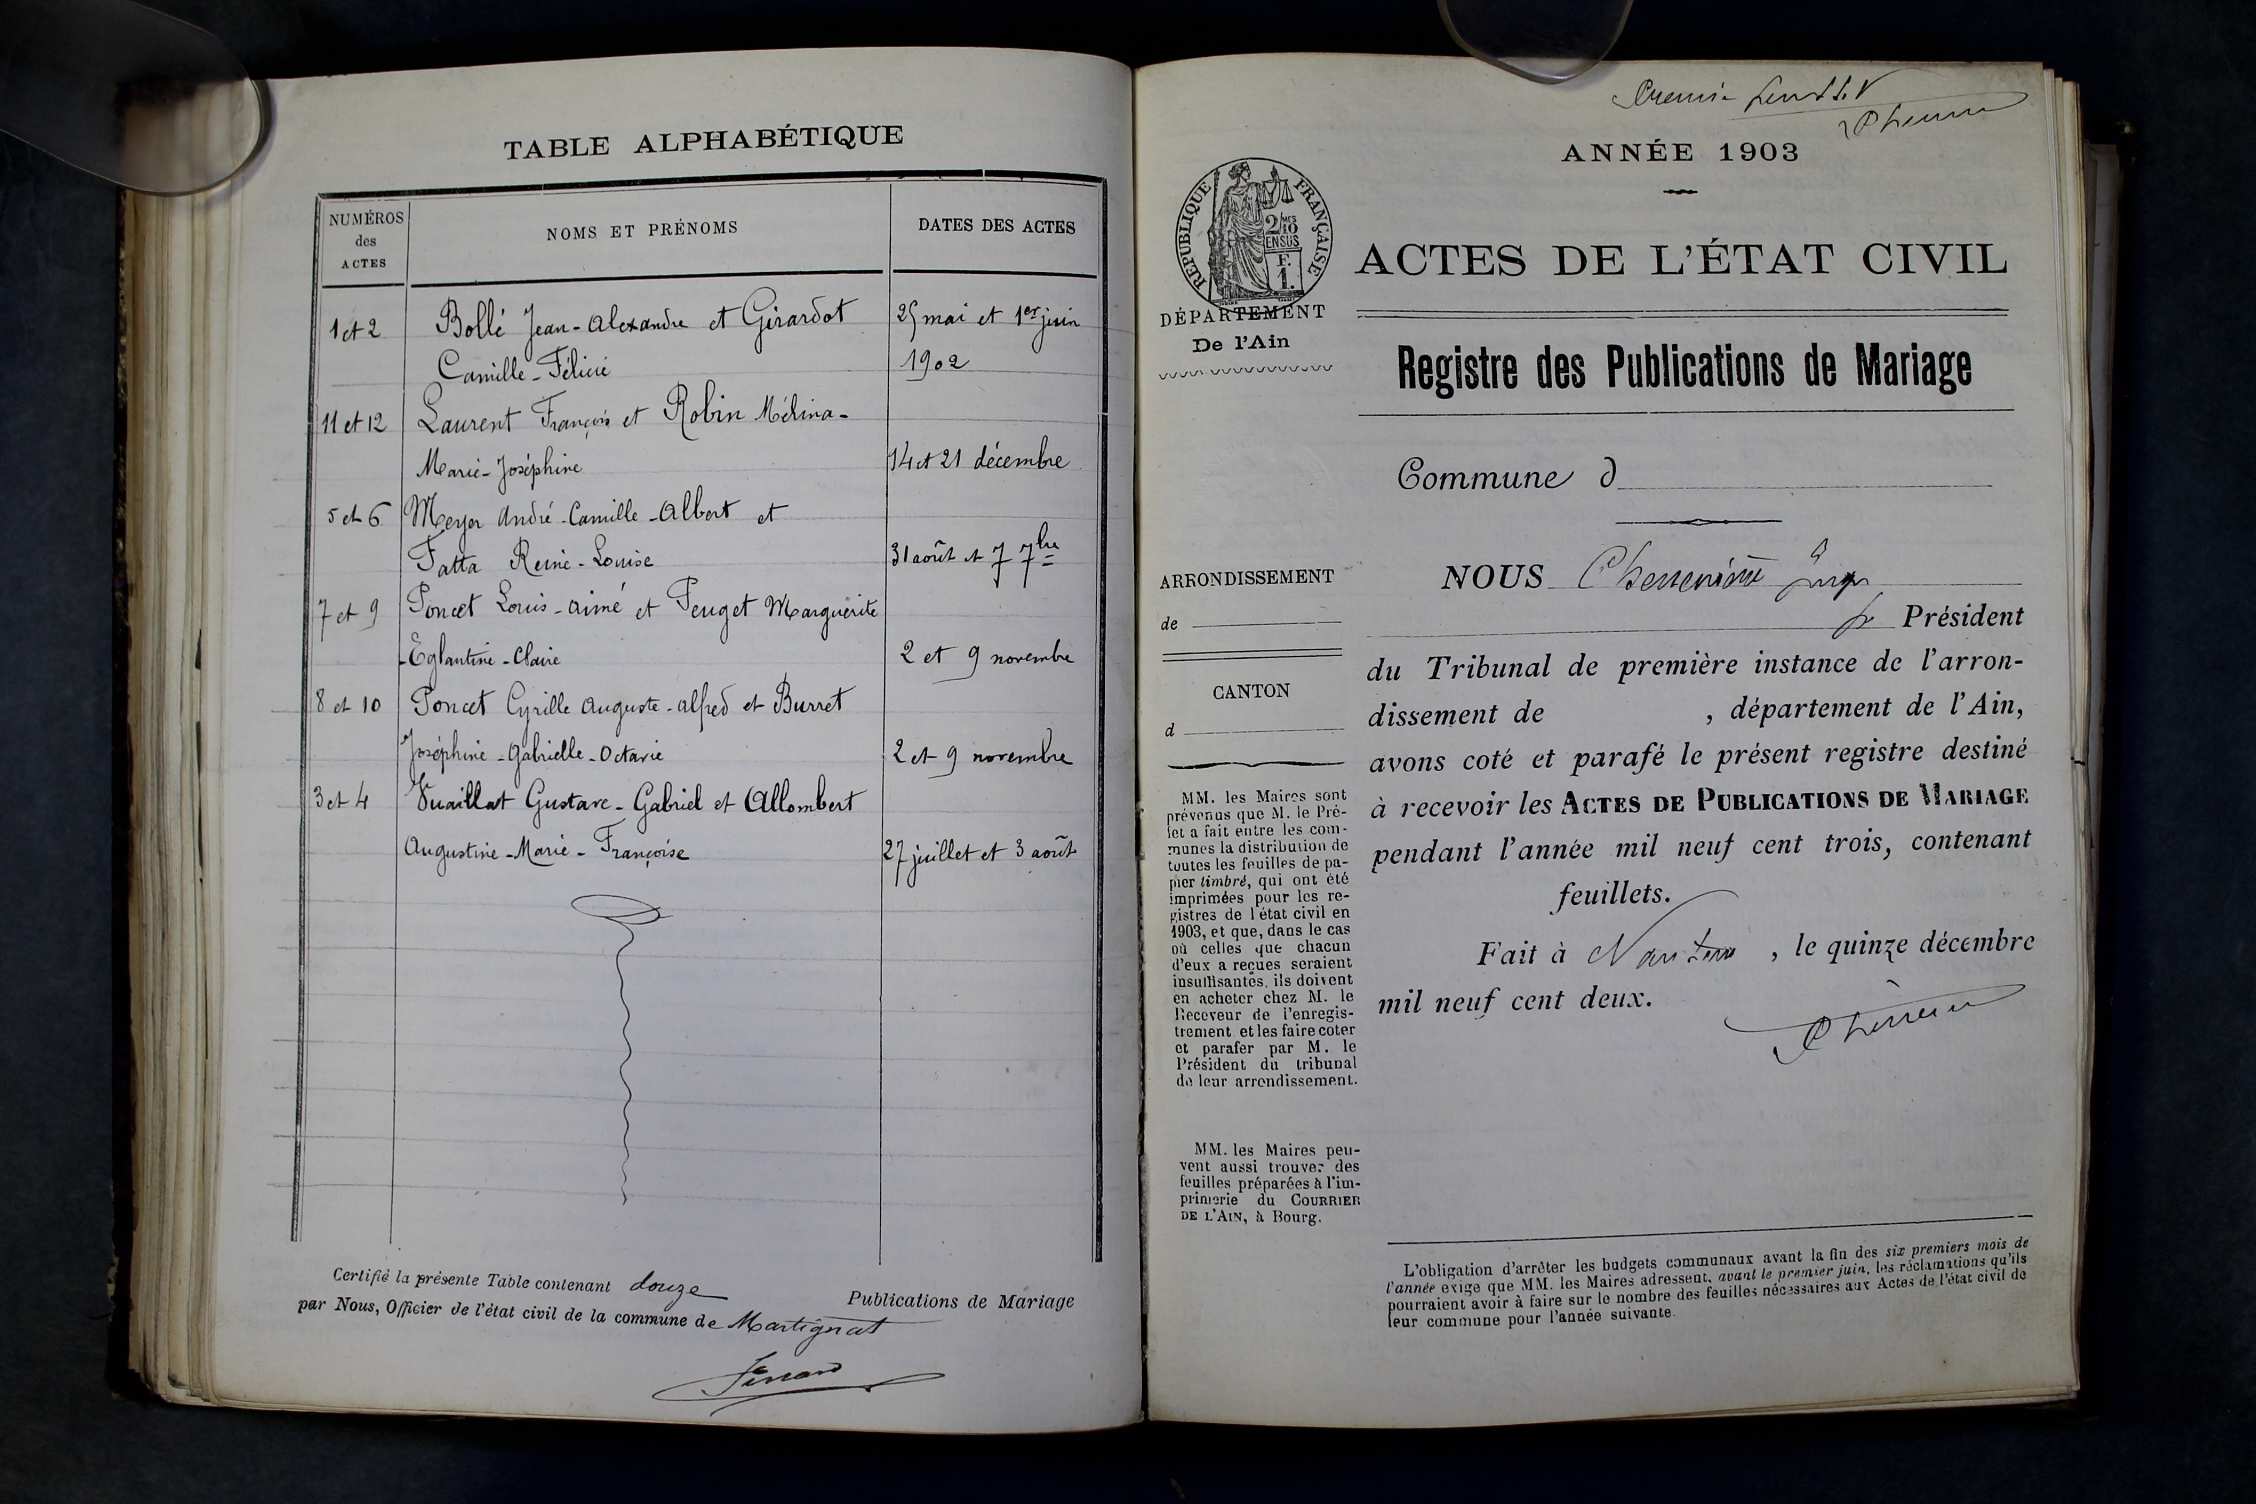 TABLE ALPHABÉTIQUE
NUMÉROS des ACTES
NOMS ET PRÉNOMS
DATES DES ACTES
1 et 2 Bollé Jean-Alexandre et Girardot 25 mai et 1er juin
Camille-Félicie 1902
11 et 12 Laurent François et Robin Mélina-
Marie-Joséphine 14 et 21 décembre
5 et 6 Meyer André-Camille-Albert et
Fatta Reine-Louise 31 août et 7 7bre
7 et 9 Poncet Louis-Aimé et Peuget Marguerite
-Eglantine-Claire 2 et 9 novembre
8 et 10 Poncet Cyrille Auguste-Alfred et Burret
Joséphine-Gabrielle-Octavie 2 et 9 novembre
3 et 4 Vuaillat Gustave-Gabriel et Allombert
Augustine-Marie-Françoise 27 juillet et 3 août
Certifié la présente Table contenant douze Publications de Mariage
par Nous, Officier de l'état civil de la commune de Martignat
Premier
ANNÉE 1903
RÉPUBLIQUE FRANÇAISE
2/10 MES
EN SUS
F.
1.
ACTES DE L'ÉTAT CIVIL
DÉPARTEMENT
De l'Ain
Registre des Publications de Mariage
Commune d
ARRONDISSEMENT
de
CANTON
d
MM. les Maires sont
prévenus que M. le Pré-
fet a fait entre les com-
munes la distribution de
toutes les feuilles de pa-
pier timbré, qui ont été
imprimées pour les re-
gistres de l'état civil en
1903, et que, dans le cas
où celles que chacun
d'eux a reçues seraient
insuffisantes, ils doivent
en acheter chez M. le
Receveur de l'enregis-
trement et les faire coter
et parafer par M. le
Président du tribunal
de leur arrondissement.
MM. les Maires peu-
vent aussi trouver des
feuilles préparées à l'im-
primerie du COURRIER
DE L'AIN, à Bourg.
NOUS
Président
du Tribunal de première instance de l'arron-
dissement de , département de l'Ain,
avons coté et parafé le présent registre destiné
à recevoir les ACTES DE PUBLICATIONS DE MARIAGE
pendant l'année mil neuf cent trois, contenant
feuillets.
Fait à Nantua , le quinze décembre
mil neuf cent deux.
L'obligation d'arrêter les budgets communaux avant la fin des six premiers mois de
l'année exige que MM. les Maires adressent, avant le premier juin, les réclamations qu'ils
pourraient avoir à faire sur le nombre des feuilles nécessaires aux Actes de l'état civil de
leur commune pour l'année suivante.